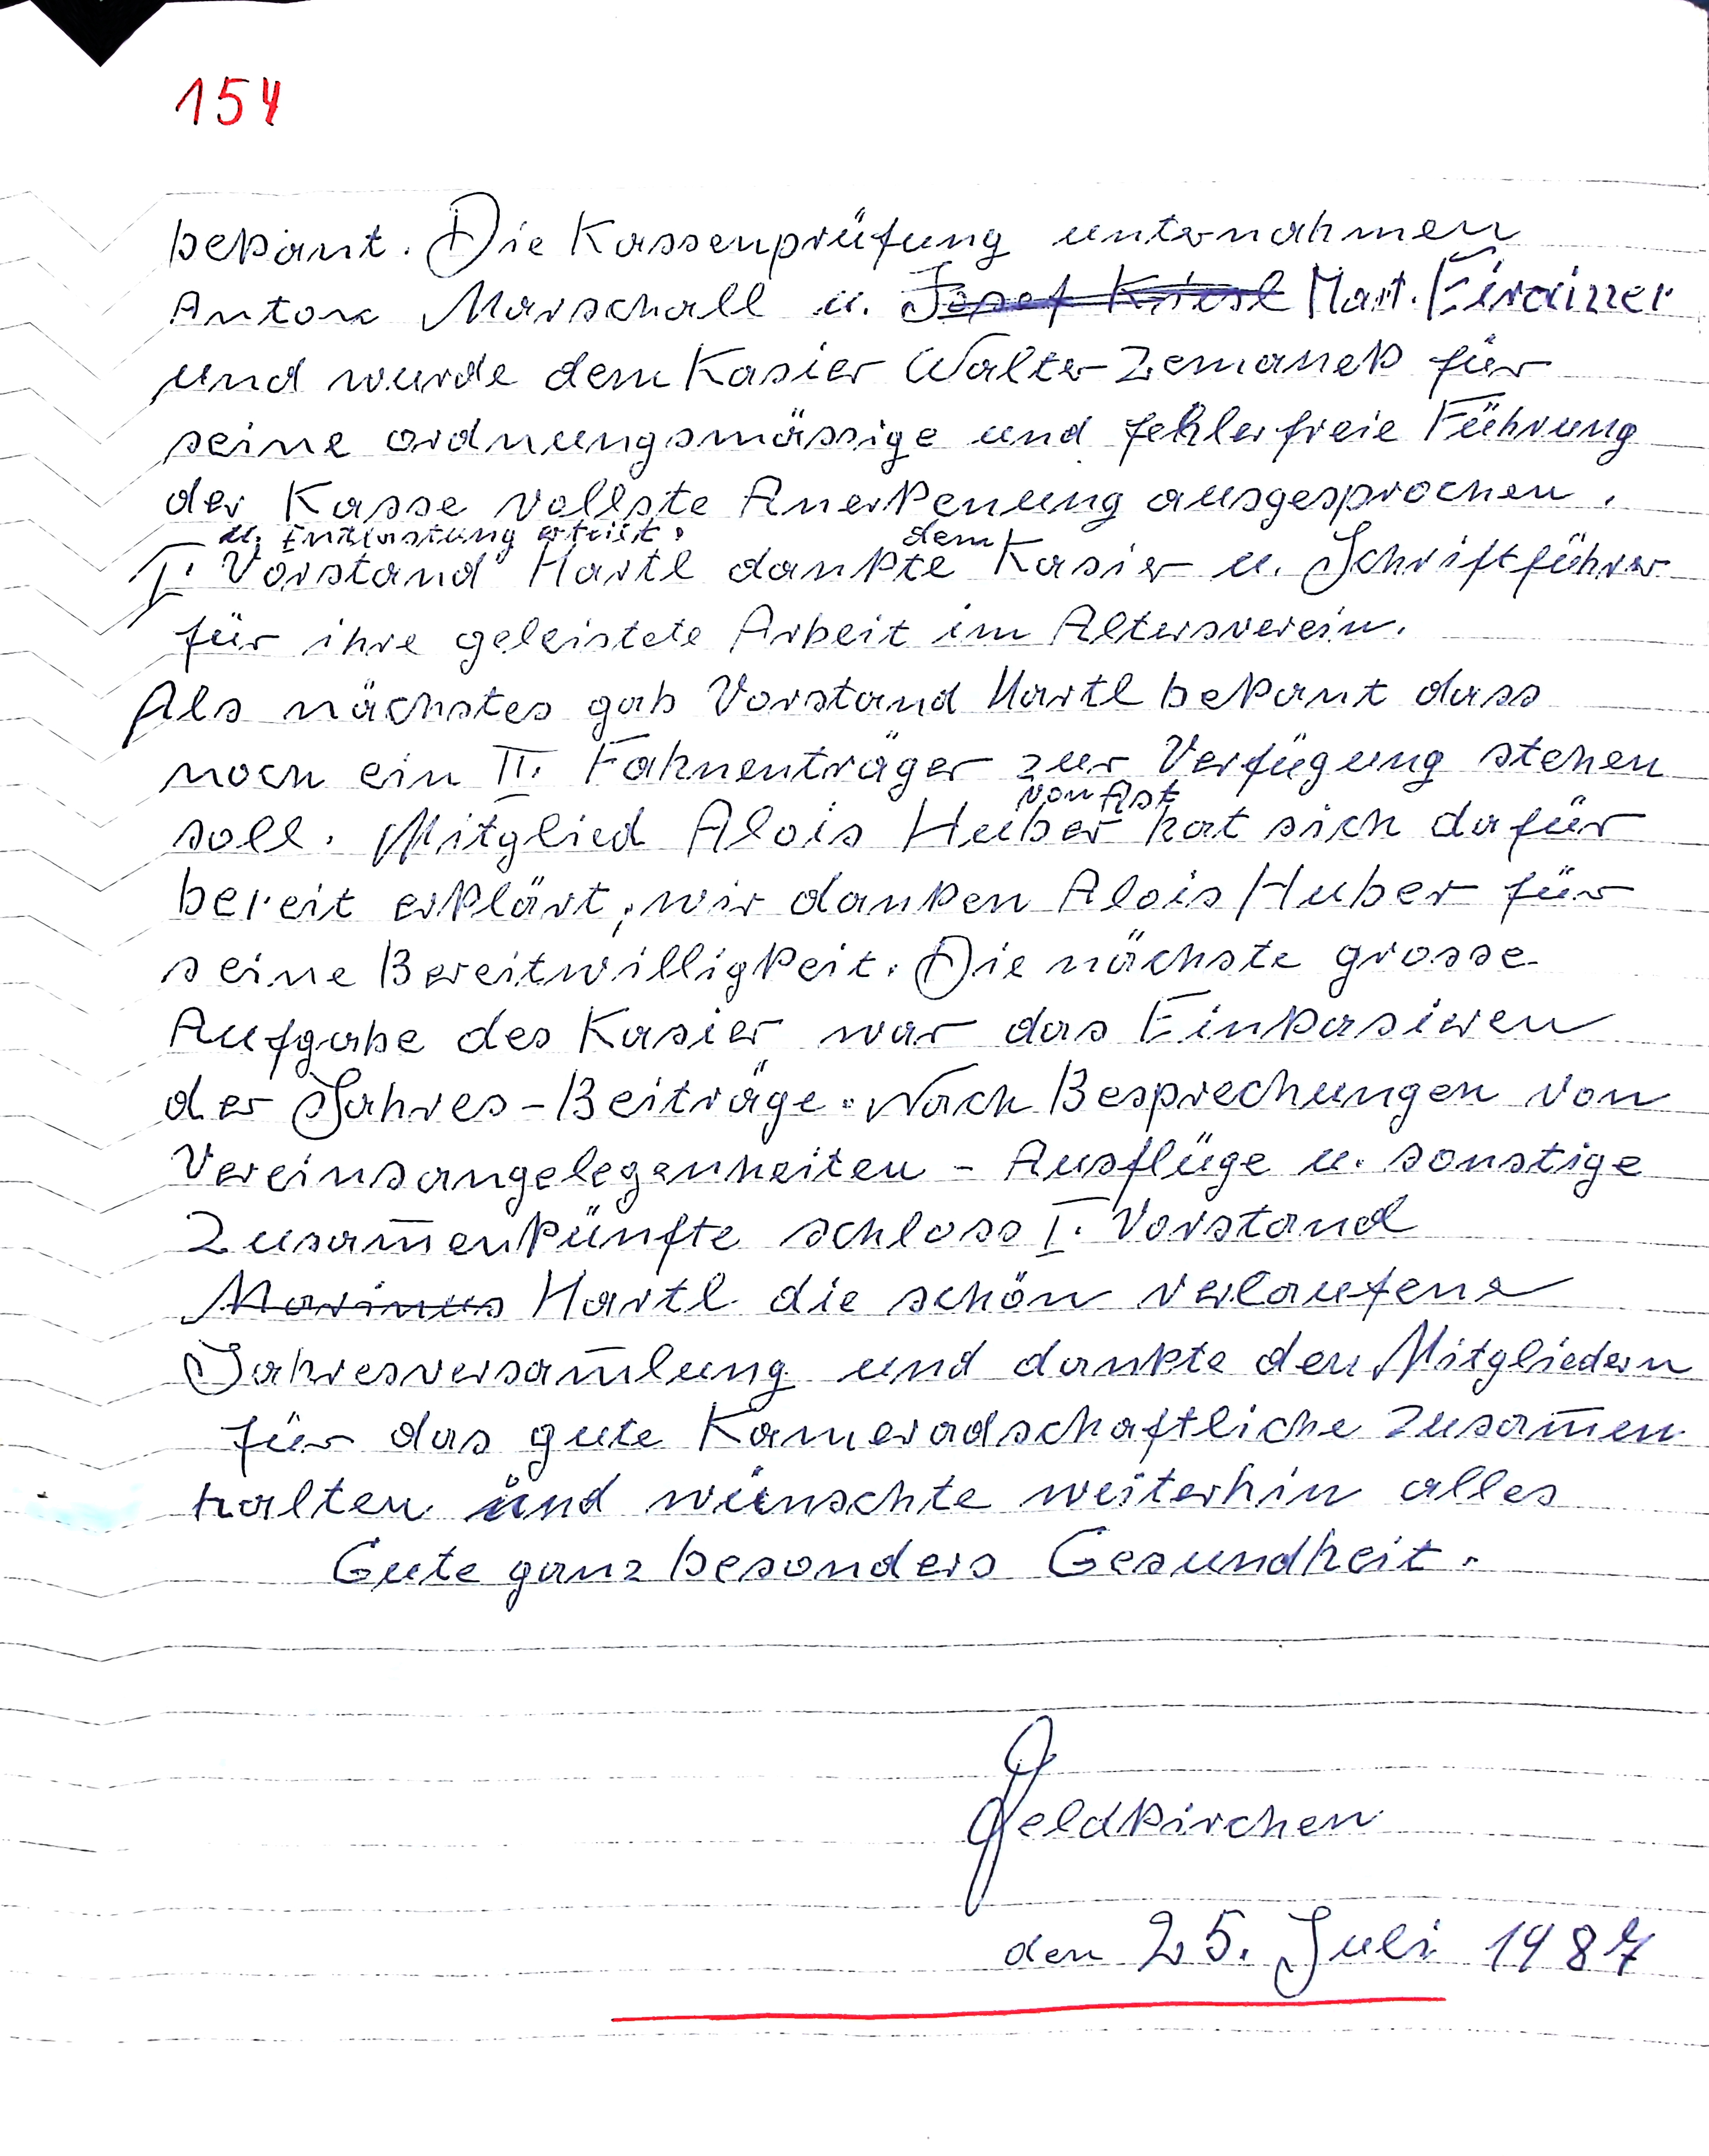 154
bekant. Die Kassenprüfung unternahmen
Anton Marschall u. Josef Kriesl Mart. Eirainer
und wurde dem Kasier Walter Zemanek für
seine ordnungsmässige und fehlerfreie Führung
der Kasse vollste Anerkenung ausgesprochen.
u. Entlastung erteilt.
I. Vorstand Hartl dankte dem Kasier u. Schriftführer
für ihre geleistete Arbeit im Altersverein.
Als nächstes gab Vorstand Hartl bekant dass
noch ein II. Fahnenträger zur Verfügung stehen
soll. Mitglied Alois Huber von Ast hat sich dafür
bereit erklärt, wir danken Alois Huber für
seine Bereitwilligkeit. Die nächste grosse
Aufgabe des Kasier war das Einkasieren
der Jahres-Beiträge. Nach Besprechungen von
Vereinsangelegenheiten - Ausflüge u. sonstige
Zusam̅enkünfte schloss I. Vorstand
Marinus Hartl die schön verlaufene
Jahresversam̅lung und dankte den Mitgliedern
für das gute Kameradschaftliche Zusam̅en
halten und wünschte weiterhin alles
Gute ganz besonders Gesundheit.
Feldkirchen
den 25. Juli 1987